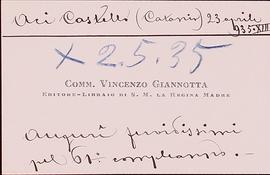 Aci Castello (Catania) 23 aprile
935-XIII
x 2.5.35
COMM. VINCENZO GIANNOTTA
EDITORE-LIBRAIO DI S. M. LA REGINA MADRE
Auguri fervidissimi
pel 61° compleanno. -